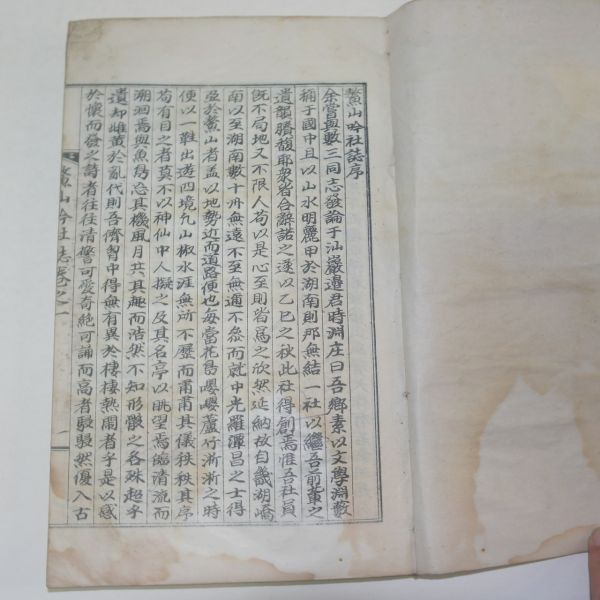 鰲山吟社誌序
余嘗與數三同志發論于汕巖邊君時淵庄曰吾鄉素以文學淵藪
稱于國中且以山水明麗甲於湖南則那無結一社以繼吾前輩之
遺韻賸馥耶衆皆合辭諾之遂以乙巳之秋此社得創焉惟吾社員
旣不局地又不限人苟以是心至則皆爲之欣然延納故自畿湖嶠
南以至湖南數十州無遠不至無適不叅而就中光羅潭昌之士得
並於鰲山者盖以地勢近而道路便也每當花鳥嚶嚶蘆竹淅淅之時
便以一鞋出遊四境凡山椒水涯無所不歷而甫甫其儀秩秩其序
苟有目之者莫不以神仙中人擬之及其名亭以眺望焉臨清流而
溯洄焉與魚鳥忘其機風月共其趣而浩然不知形骸之各殊超乎
遺却雌黃於亂代則吾儕習中得無有異於棲棲熱鬧者乎是以感
於懷而發之詩者往往清警可愛奇絶可誦而高者駸駸然優入古
鰲山吟社誌卷之一
一